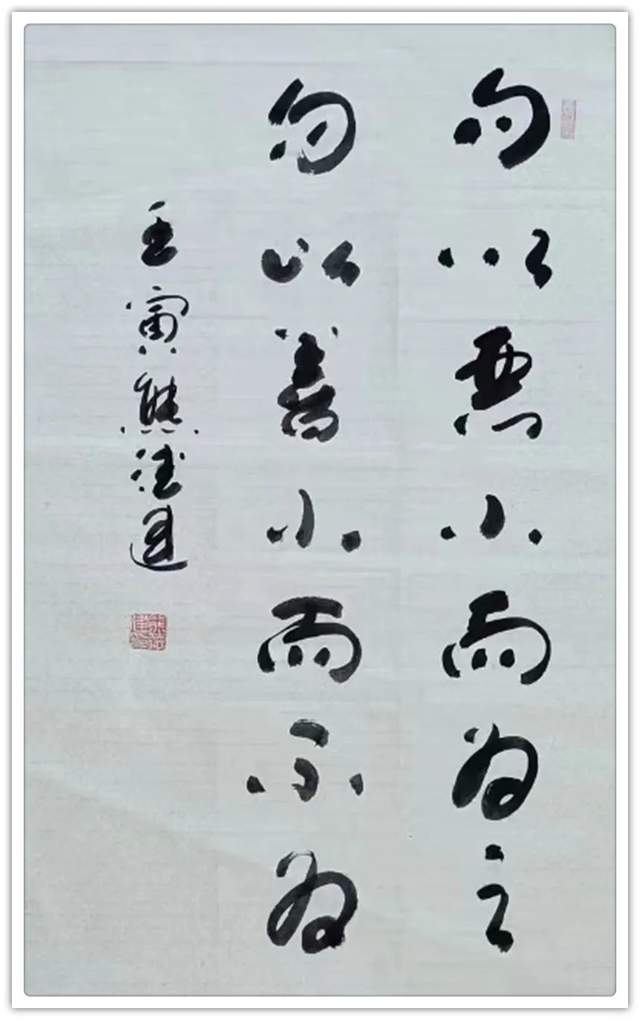 勿以恶小而为之
勿以善小而不为
壬寅熊德建